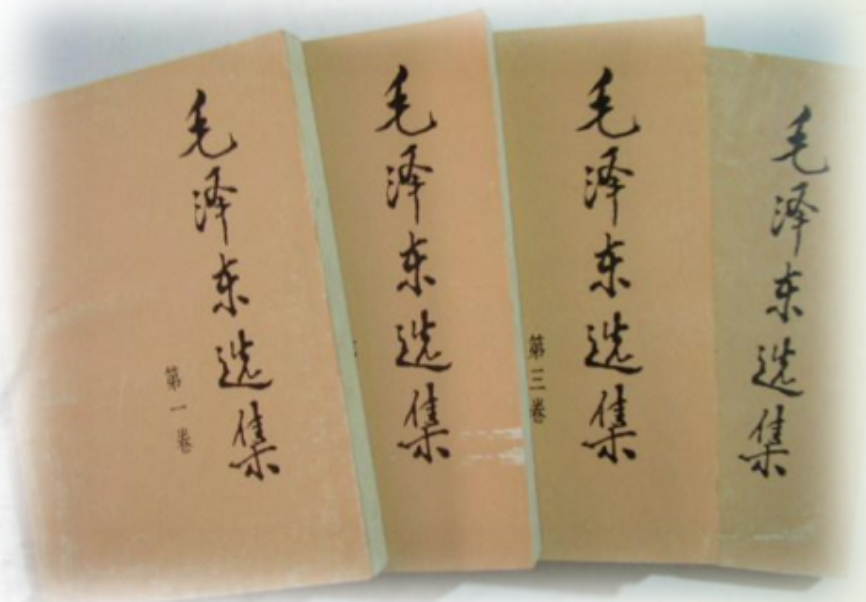 毛泽东选集
第一卷
毛泽东选集
毛泽东选集
第三卷
毛泽东选集